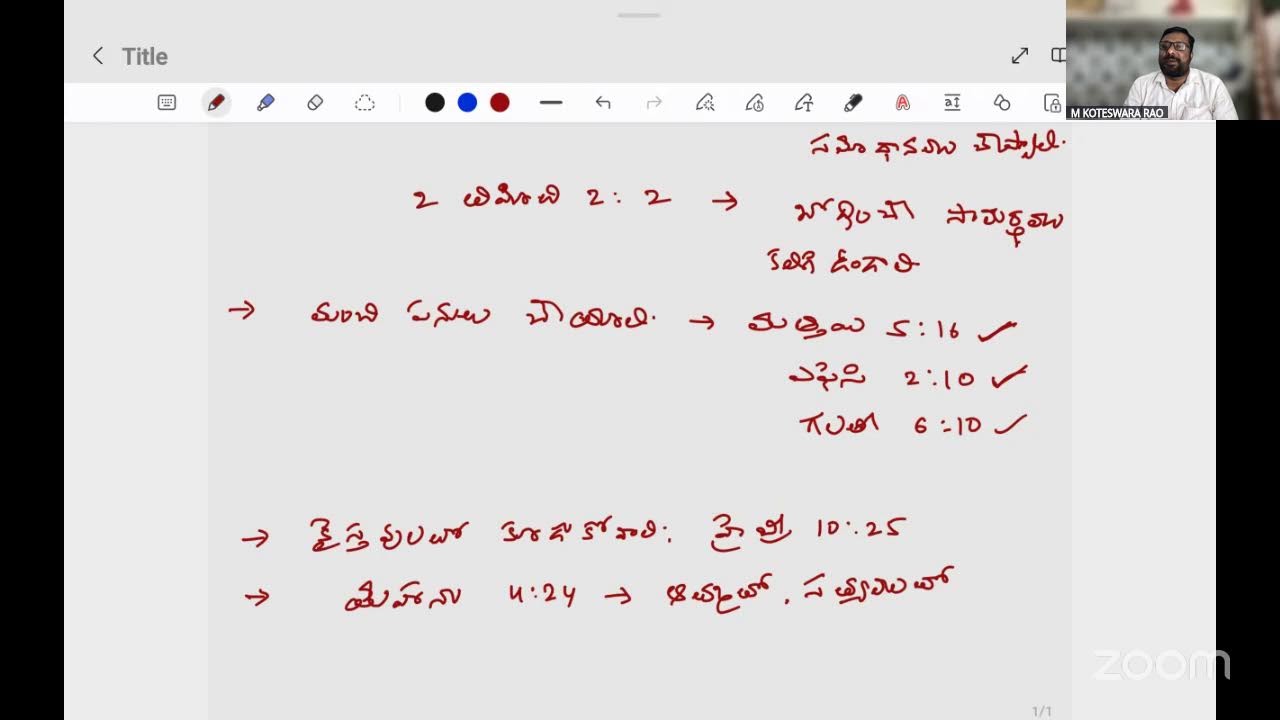 Title
M KOTESWARA RAO
సమాధానములు చెప్పాలి.
2 తిమోతి 2:2 → బోధించే సామర్థ్యము
కలిగి ఉండాలి
→ మంచి పనులు చేయాలి. → మత్తయి 5:16 ✓
ఎఫెసి 2:10 ✓
గలతీ 6:10 ✓
→ క్రైస్తవులతో కూడుకోవాలి: హెబ్రీ 10:25
→ యోహాను 4:24 → ఆత్మతో, సత్యములతో
zoom
1/1